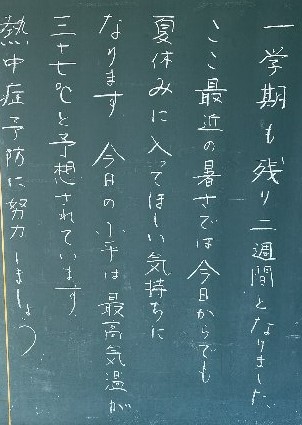 一学期も残り二週間となりました。
ここ最近の暑さでは今日からでも
夏休みに入ってほしい気持ちに
なります 今日の小平は最高気温が
三十七℃と予想されています
熱中症予防に努力しましょう